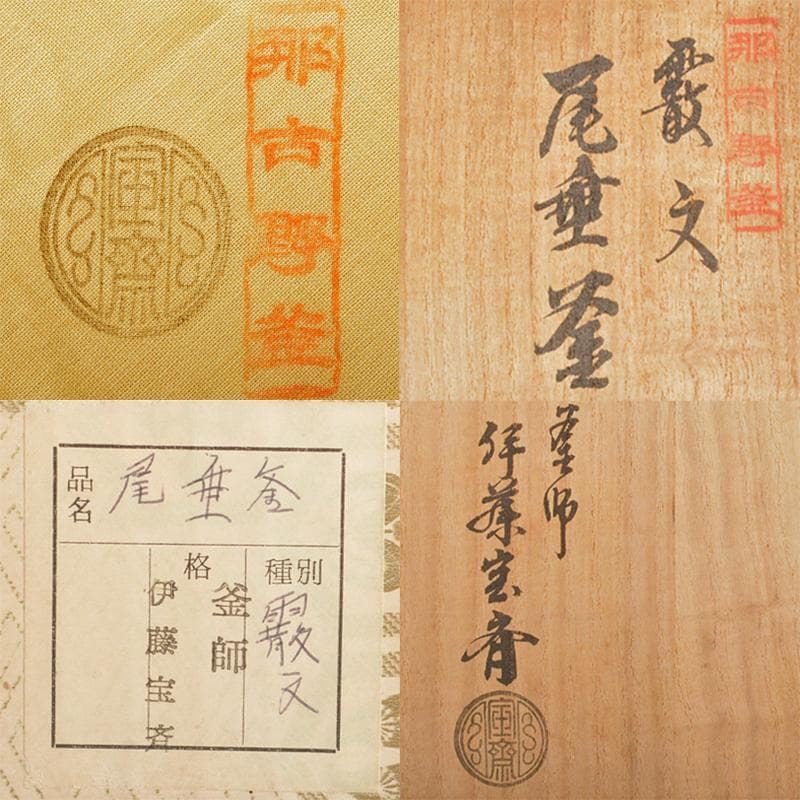 那古野釜
宝斎
那古野釜
霰文
尾垂釜
品名
尾垂釜
種別
霰文
格
釜師
伊藤宝斉
釜師
伊藤宝斎
宝斎